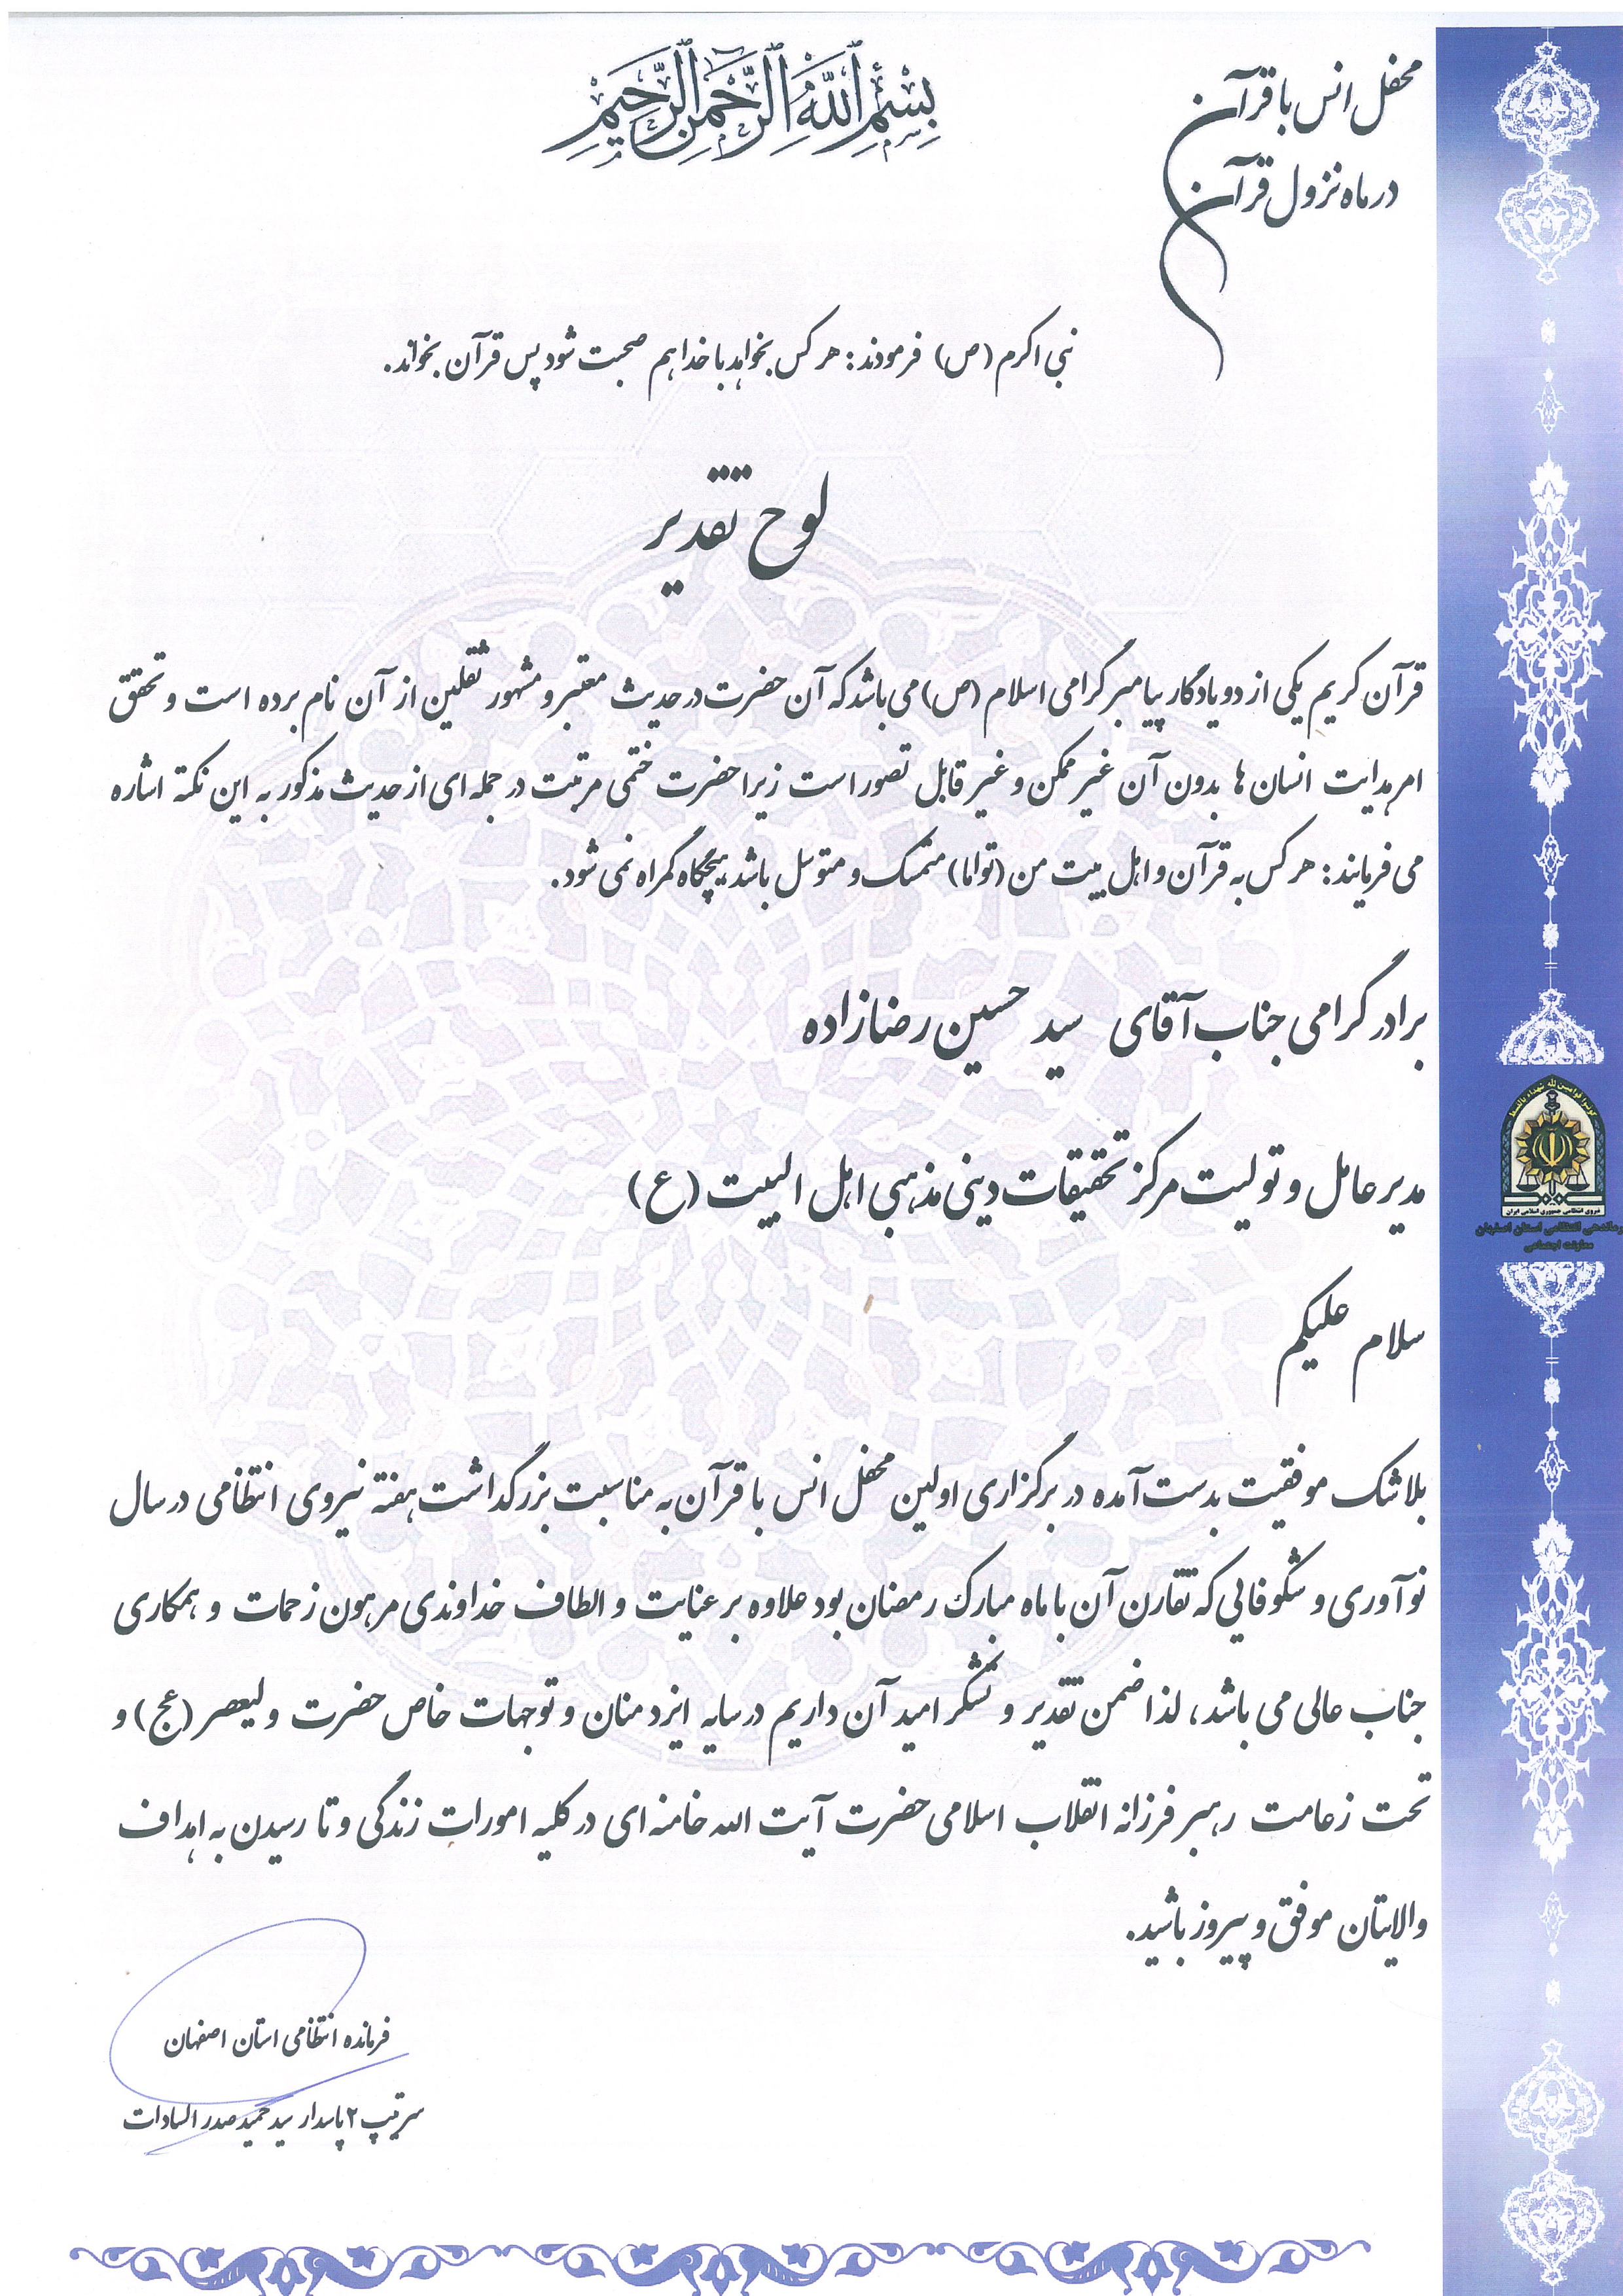 بسم الله الرحمن الرحیم
محفل انس با قرآن
در ماه نزول قرآن
نبی اکرم (ص) فرمودند: هر کس بخواهد با خدا هم صحبت شود پس قرآن بخواند.
لوح تقدیر
قرآن کریم یکی از دو یادگار پیامبر گرامی اسلام (ص) می باشد که آن حضرت در حدیث معتبر و مشهور ثقلین از آن نام برده است و تحقق
امر هدایت انسان ها بدون آن غیر ممکن و غیر قابل تصور است زیرا حضرت ختمی مرتبت در جمله ای از حدیث مذکور به این نکته اشاره
می فرمایند: هر کس به قرآن و اهل بیت من (تواما) متمسک و متوسل باشد هیچگاه گمراه نمی شود.
برادر گرامی جناب آقای سید حسین رضازاده
مدیر عامل و تولیت مرکز تحقیقات دینی مذهبی اهل البیت (ع)
سلام علیکم
بلاشک موفقیت بدست آمده در برگزاری اولین محفل انس با قرآن به مناسبت بزرگداشت هفته نیروی انتظامی در سال
نوآوری و شکوفایی که تقارن آن با ماه مبارک رمضان بود علاوه بر عنایت و الطاف خداوندی مرهون زحمات و همکاری
جناب عالی می باشد، لذا ضمن تقدیر و تشکر امید آن داریم در سایه ایزد منان و توجهات خاص حضرت ولیعصر (عج) و
تحت زعامت رهبر فرزانه انقلاب اسلامی حضرت آیت الله خامنه ای در کلیه امورات زندگی و تا رسیدن به اهداف
والایتان موفق و پیروز باشید.
فرمانده انتظامی استان اصفهان
سرتیپ ۲ پاسدار سید حمید صدر السادات
کونوا قوامین لله شهداء بالقسط
نیروی انتظامی جمهوری اسلامی ایران
فرماندهی انتظامی استان اصفهان
معاونت اجتماعی